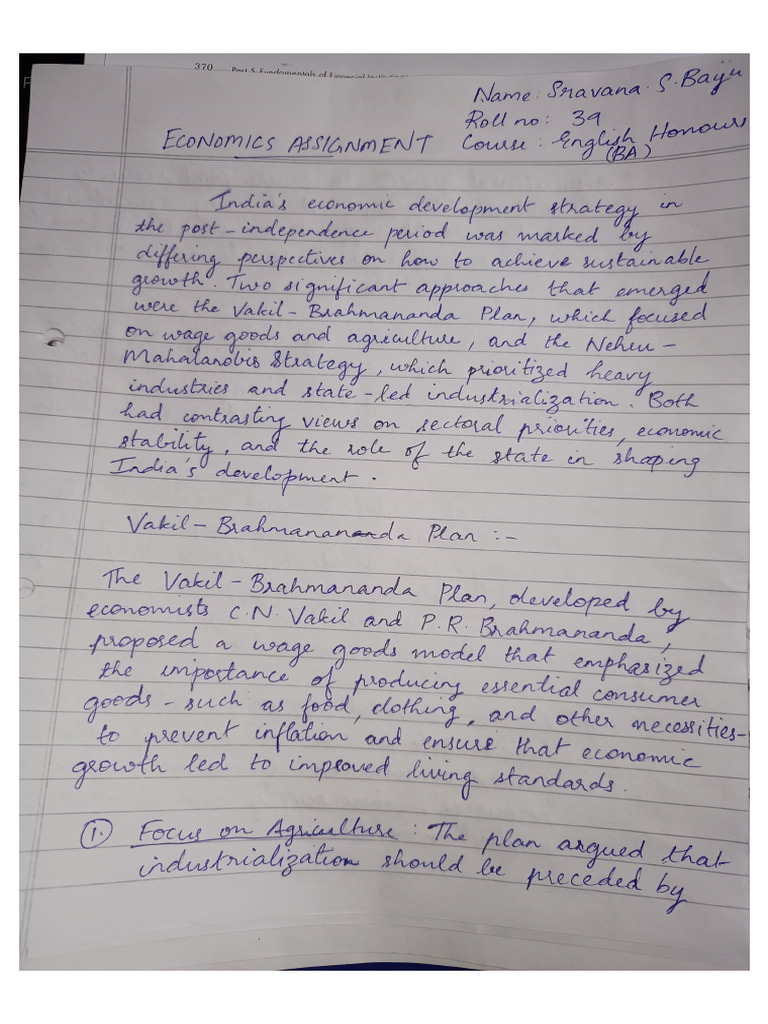 370 Part 5 Fundamentals of Financial Institutions
Name: Sravana. S. Baiju
Roll no: 39
ECONOMICS ASSIGNMENT Course: English Honours
(BA)
India's economic development strategy in
the post-independence period was marked by
differing perspectives on how to achieve sustainable
growth. Two significant approaches that emerged
were the Vakil-Brahmananda Plan, which focused
on wage goods and agriculture, and the Nehru-
Mahalanobis Strategy, which prioritized heavy
industries and state-led industrialization. Both
had contrasting views on sectoral priorities, economic
stability, and the role of the state in shaping
India's development.
Vakil-Brahmananda Plan :-
The Vakil-Brahmananda Plan, developed by
economists C.N. Vakil and P.R. Brahmananda,
proposed a wage goods model that emphasized
the importance of producing essential consumer
goods-such as food, clothing, and other necessities-
to prevent inflation and ensure that economic
growth led to improved living standards.
① Focus on Agriculture: The plan argued that
industrialization should be preceded by